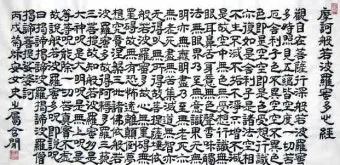 摩訶般若波羅蜜多心經
觀自在菩薩行深般若波羅蜜
多時照見五蘊皆空度一切苦
厄舍利子色不異空空不異色
色即是空空即是色受想行識
亦復如是舍利子是諸法空相
不生不滅不垢不淨不增不減
是故空中無色無受想行識無
眼耳鼻舌身意無色聲香味觸
法無眼界乃至無意識界無無
明亦無無明盡乃至無老死亦
無老死盡無苦集滅道無智亦
無得以無所得故菩提薩埵依
般若波羅蜜多故心無罣礙無
罣礙故無有恐怖遠離顛倒夢
想究竟涅槃三世諸佛依般若
波羅蜜多故得阿耨多羅三藐
三菩提故知般若波羅蜜多是
大神呪是大明呪是無上呪是
無等等呪能除一切苦真實不虛
故說般若波羅蜜多呪即說呪
曰揭諦揭諦波羅揭諦波羅僧
揭諦菩提薩婆訶
丙戌女史之屬